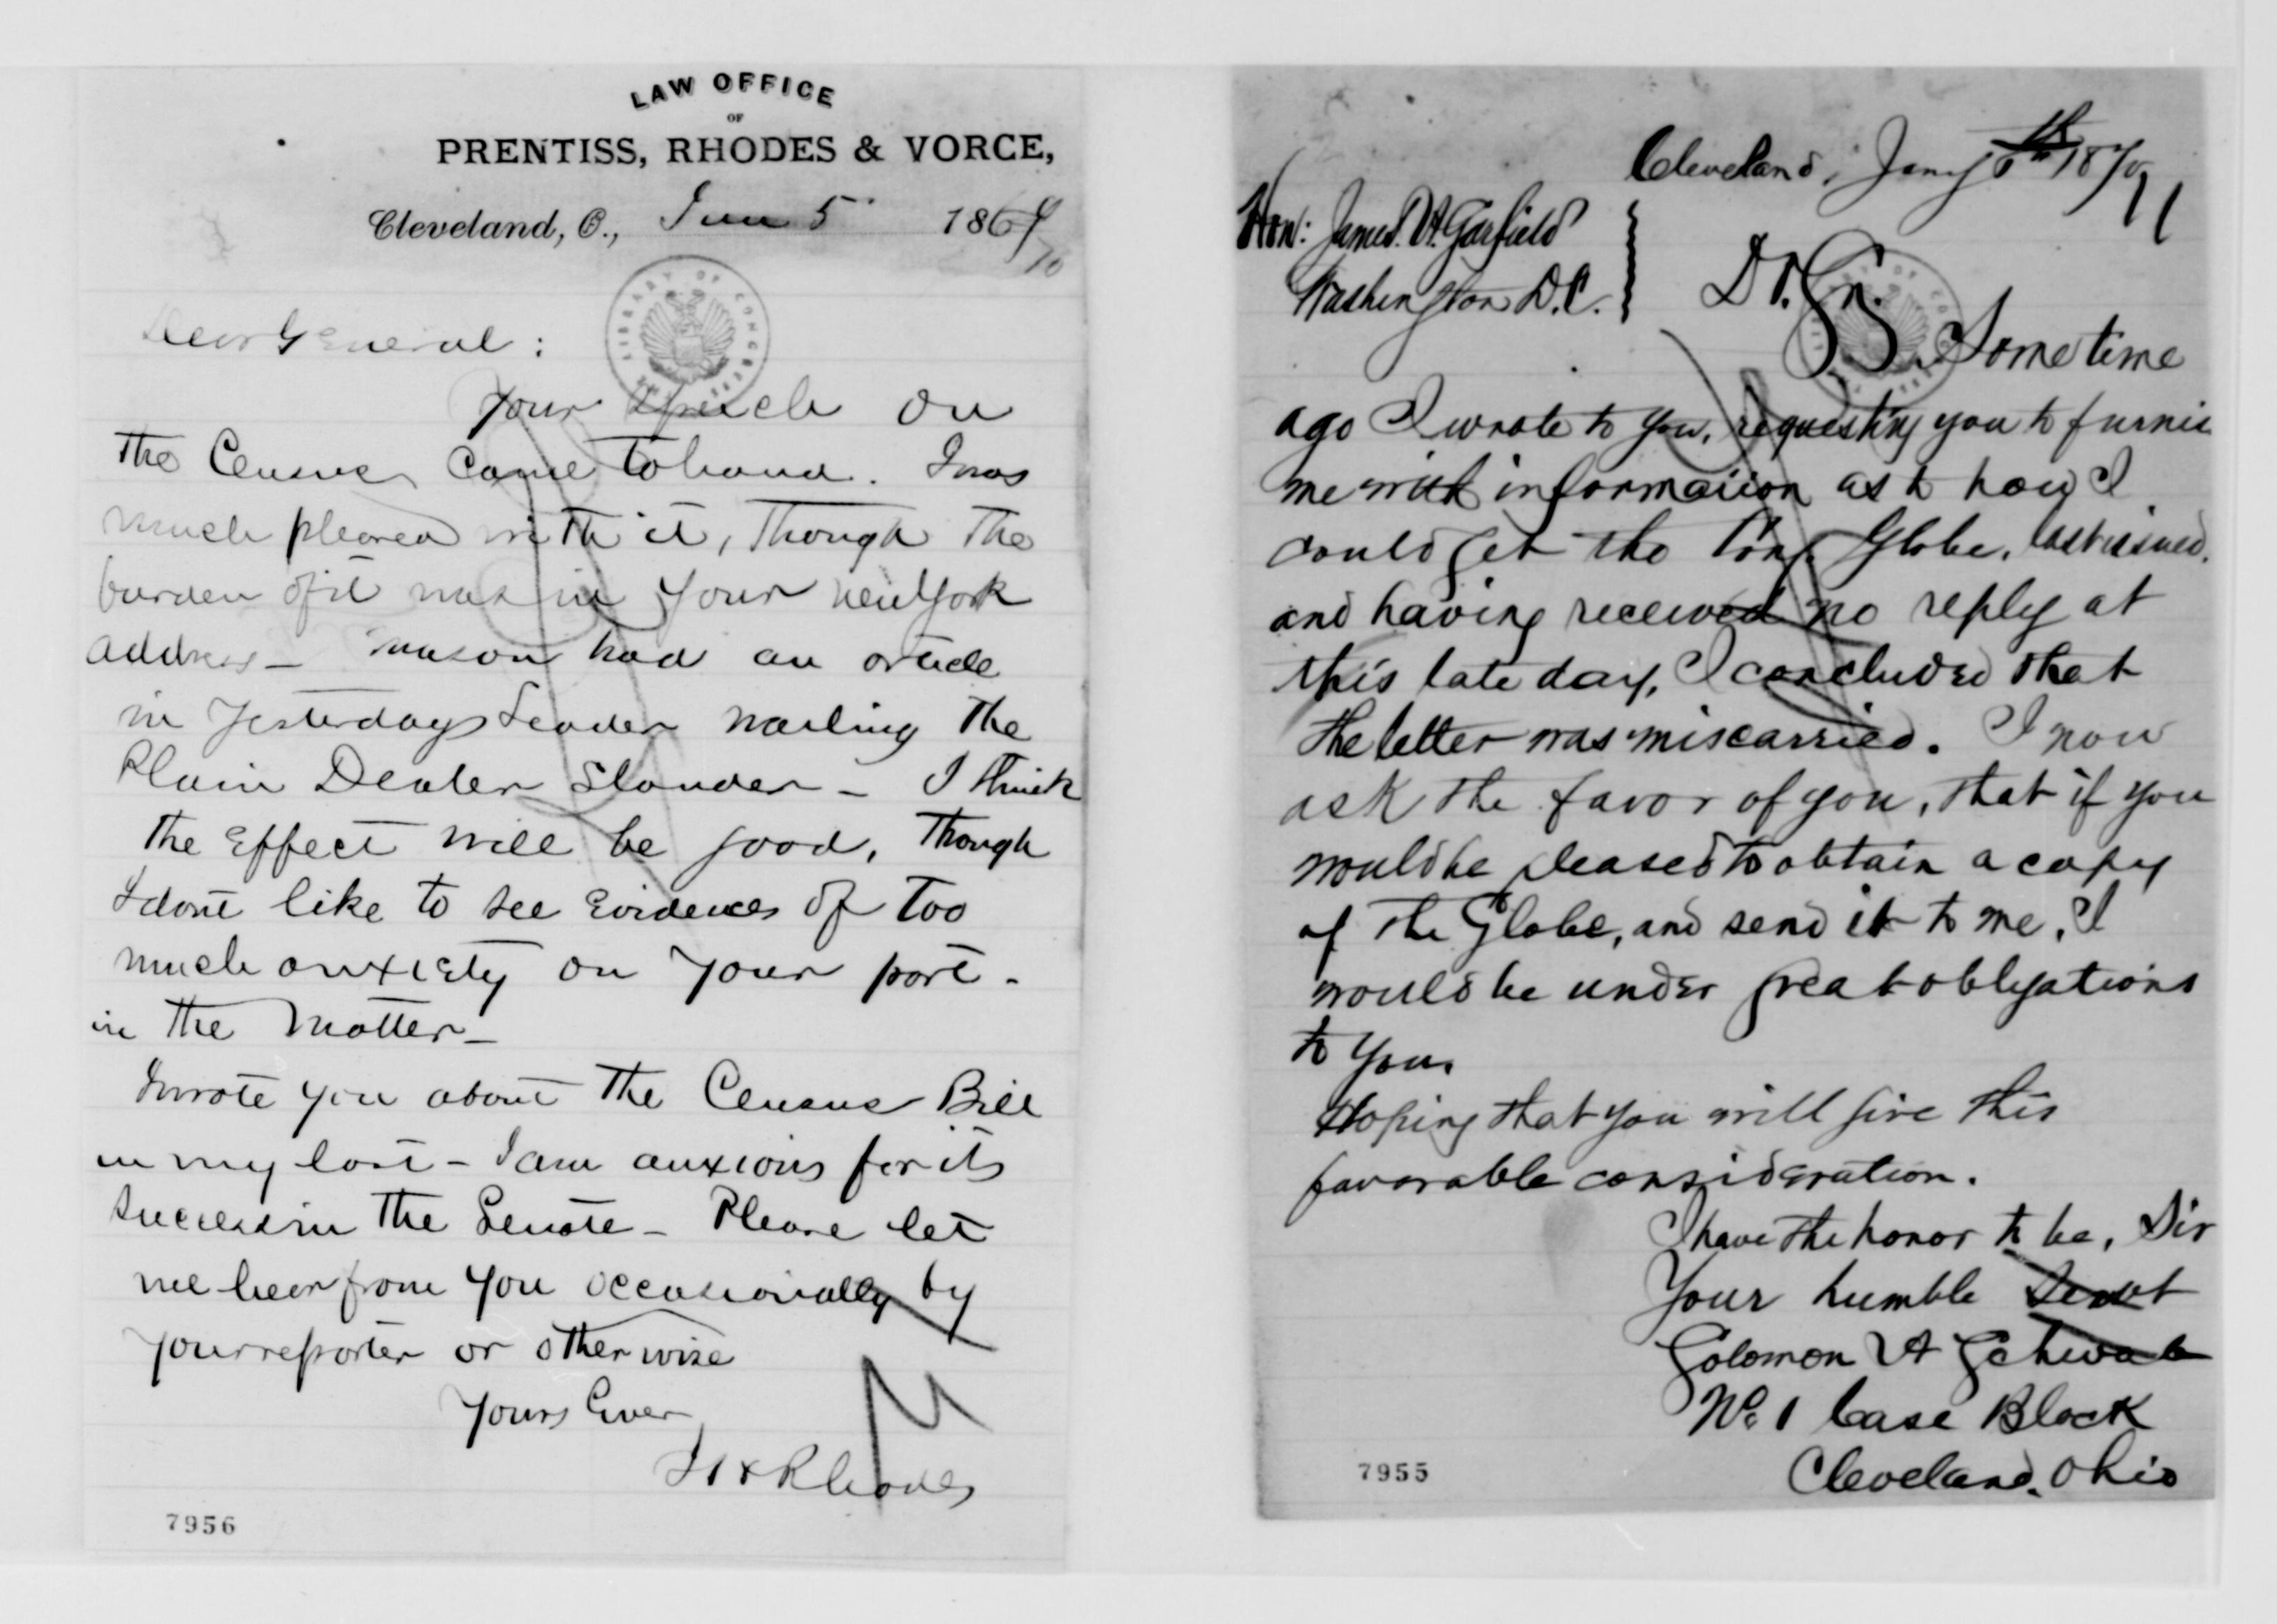 LAW OFFICE
OF
PRENTISS, RHODES & VORCE,
Cleveland, O., Jan 5 1869
70
Dear General:
Your Speech on
the Census came to hand. I was
much pleased with it, though the
burden of it was in your New York
address - Mason had an article
in Yesterdays Leader nailing the
Plain Dealer Slander - I think
the Effect will be good, though
I dont like to see Evidences of too
much anxiety on your part -
in the Matter -
I wrote you about the Census Bill
in my last - I am anxious for its
Success in the Senate - Please let
me hear from you occasionally by
your reporter or otherwise
Yours Ever
Rhodes
7956
Cleveland, Jany 6th 1870
Hon: James. A. Garfield
Washington D.C.
Dr. Sir.
Some time
ago I wrote to you, requesting you to furnis
me with information as to how I
could get the Cong. Globe, last issued,
and having received no reply at
this late day, I concluded that
the letter was miscarried. I now
ask the favor of you, that if you
would be pleased to obtain a copy
of the Globe, and send it to me, I
would be under great obligations
to you.
Hoping that you will give this
favorable consideration.
I have the honor to be, Sir
Your humble Servt
Solomon A Schwab
No. 1 Case Block
Cleveland, Ohio
7955